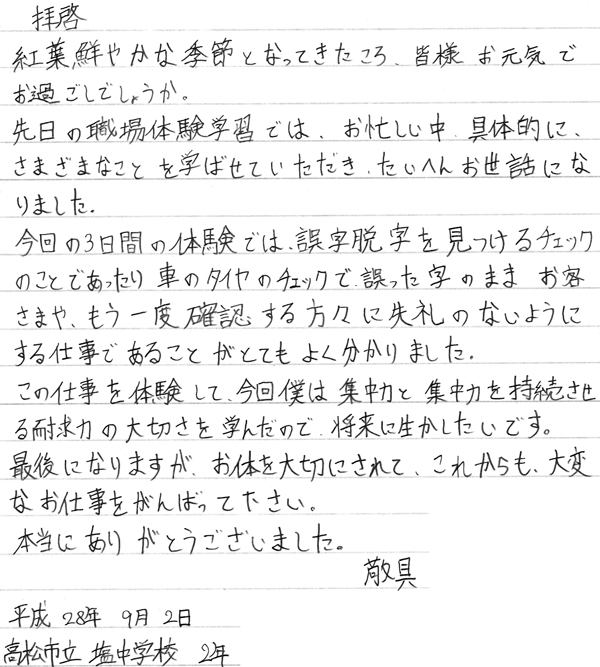 拝啓
紅葉鮮やかな季節となってきたころ、皆様 お元気で
お過ごしでしょうか。
先日の職場体験学習では、お忙しい中、具体的に、
さまざまなことを学ばせていただき、たいへんお世話にな
りました。
今回の3日間の体験では、誤字脱字を見つけるチェック
のことであったり車のタイヤのチェックで、誤った字のまま お客
さまや、もう一度確認する方々に失礼のないように
する仕事であることがとてもよく分かりました。
この仕事を体験して、今回僕は集中力と集中力を持続させ
る耐求力の大切さを学んだので、将来に生かしたいです。
最後になりますが、お体を大切にされて、これからも、大変
なお仕事をがんばって下さい。
本当にありがとうございました。
敬具
平成28年 9月2日
高松市立 塩中学校 2年